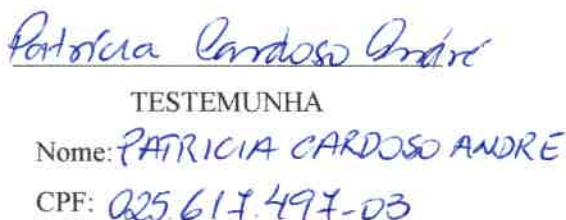 Patrícia Cardoso André
TESTEMUNHA
Nome: PATRICIA CARDOSO ANDRE
CPF: 025.617.497-03